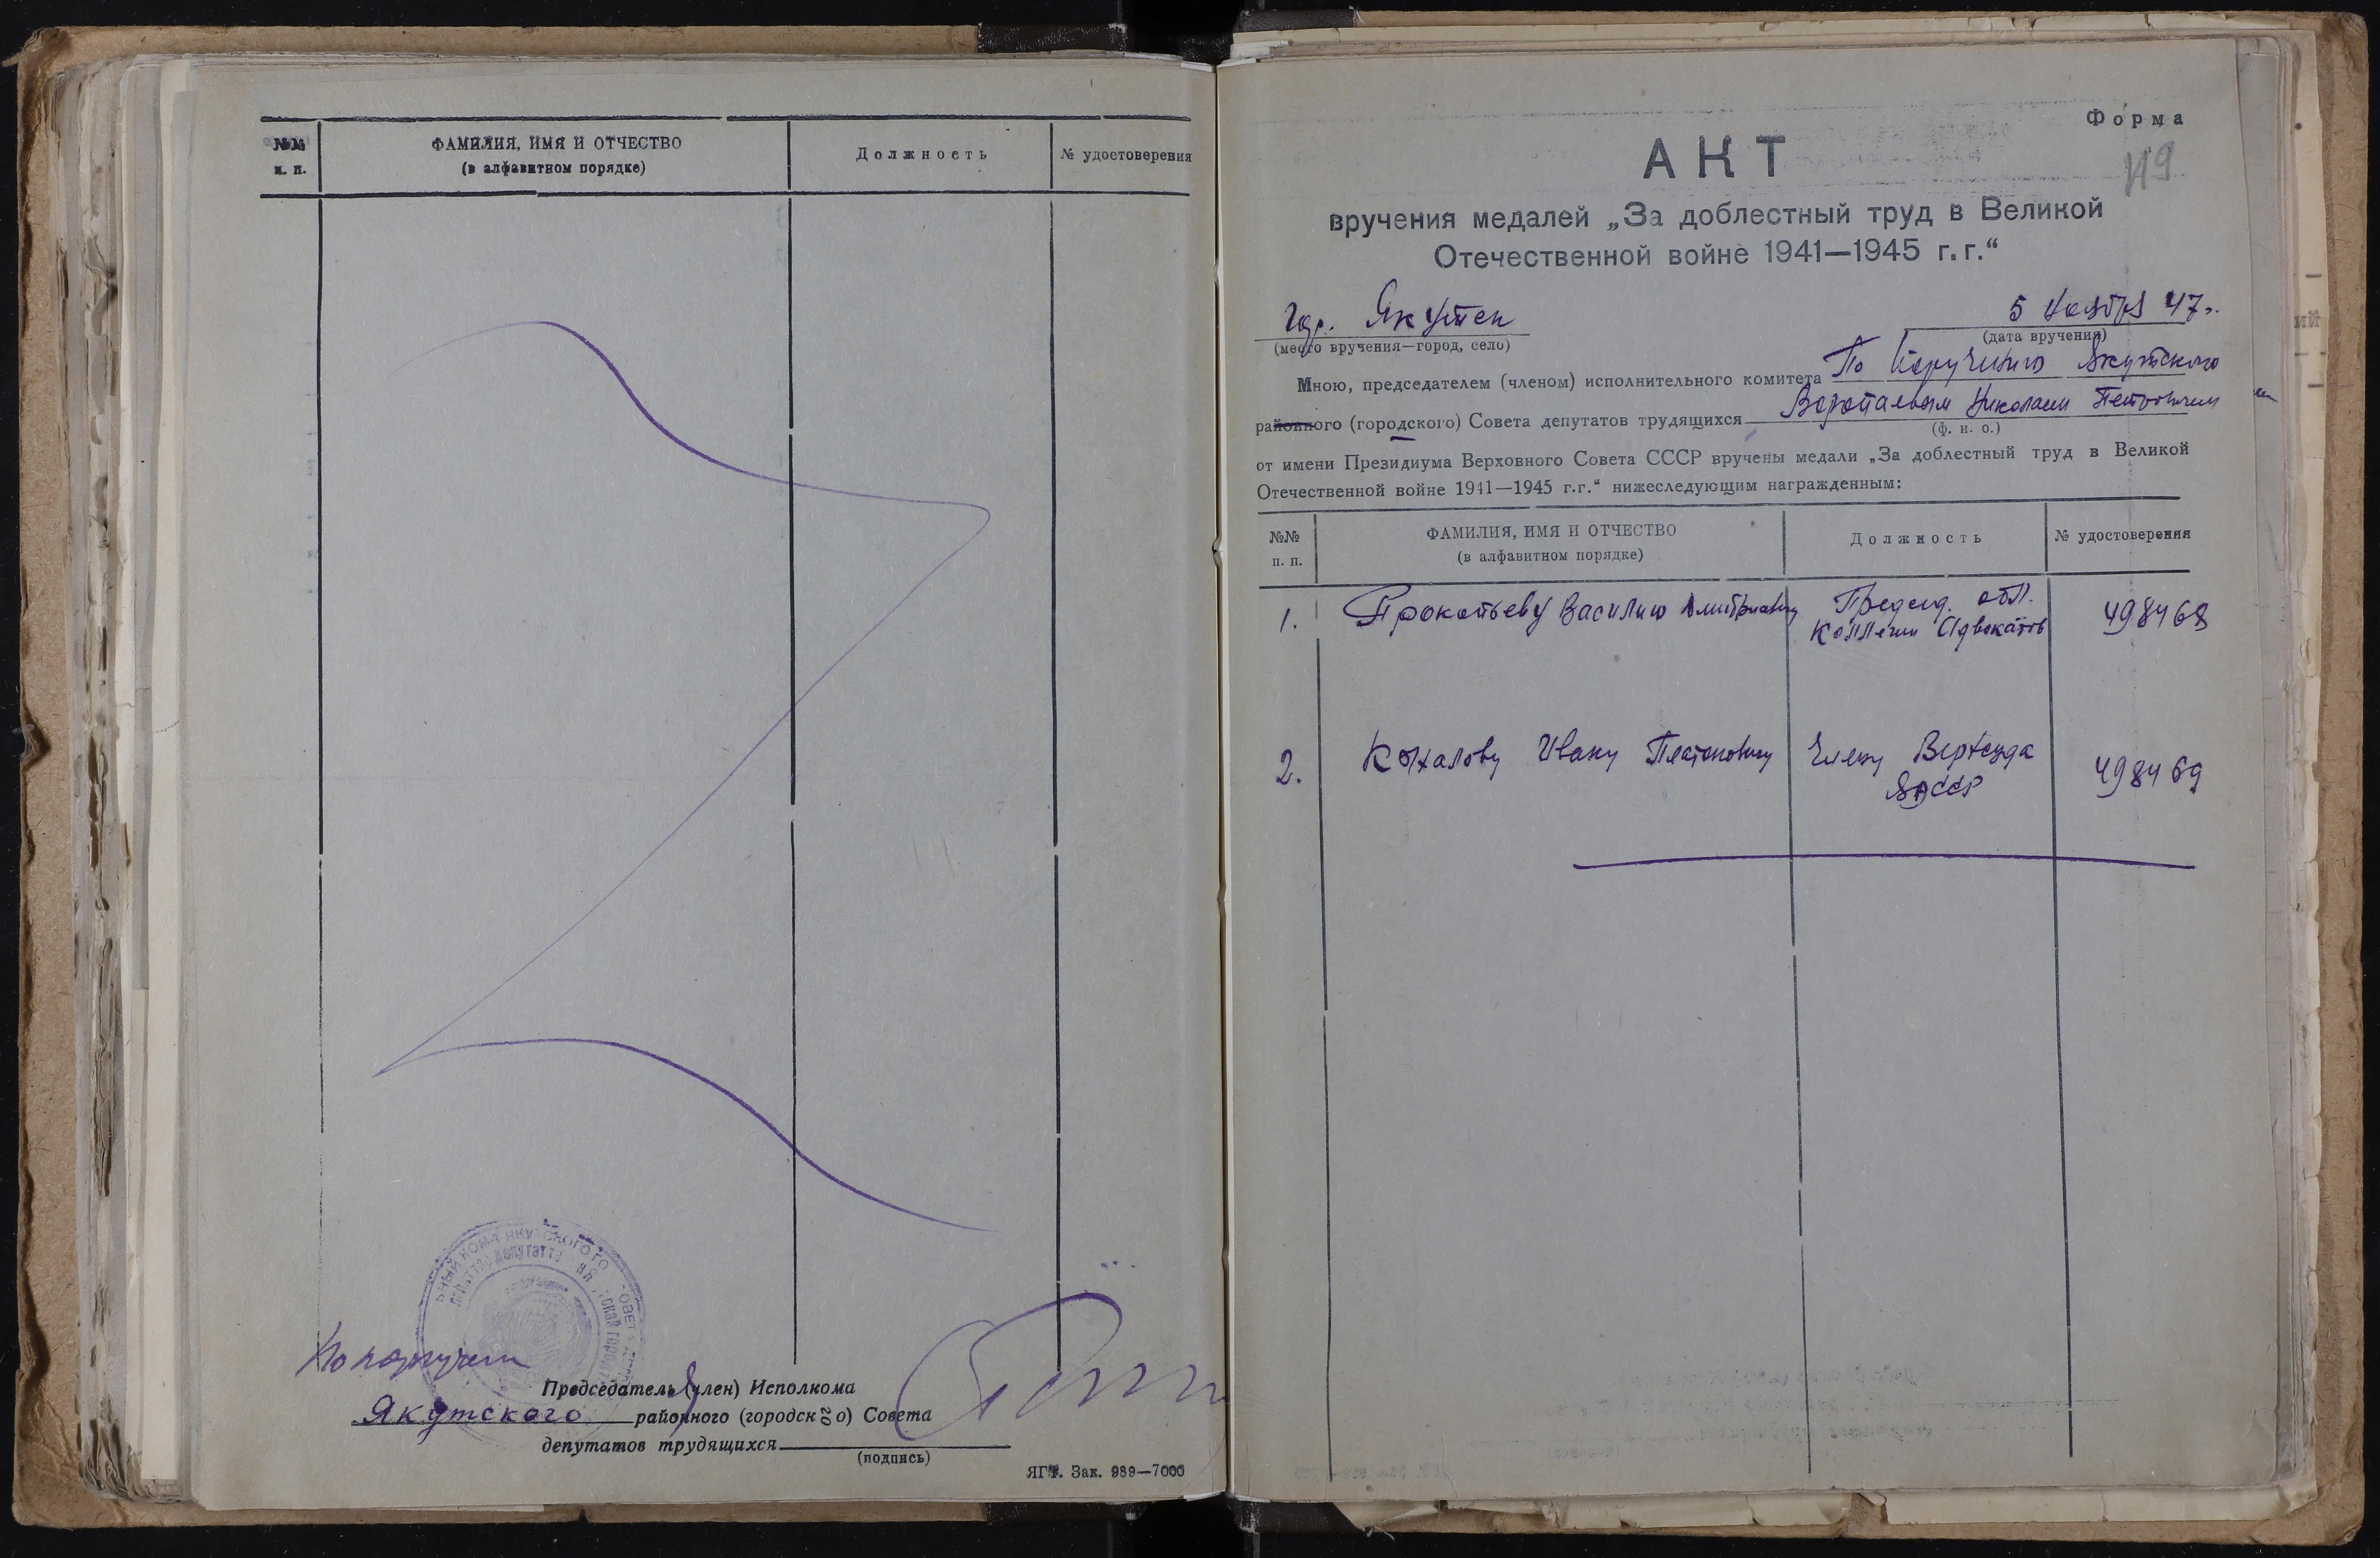 №№
п. п.
ФАМИЛИЯ, ИМЯ И ОТЧЕСТВО
(в алфавитном порядке)
Должность
№ удостоверения
По поручен
Председатель (член) Исполкома
Якутского районного (городского) Совета
депутатов трудящихся
(подпись)
ЯГТ. Зак. 989—7000
Форма
119
АКТ
вручения медалей „За доблестный труд в Великой
Отечественной войне 1941—1945 г.г.“
гор. Якутск
5 ноября 47 г.
(место вручения—город, село)
(дата вручения)
Мною, председателем (членом) исполнительного комитета По поручению Якутского
районного (городского) Совета депутатов трудящихся Воропаевым Николаем Петровичем
(ф. и. о.)
от имени Президиума Верховного Совета СССР вручены медали „За доблестный труд в Великой
Отечественной войне 1941—1945 г.г.“ нижеследующим награжденным:
№№
п. п.
ФАМИЛИЯ, ИМЯ И ОТЧЕСТВО
(в алфавитном порядке)
Должность
№ удостоверения
1. Прокопьеву Василию Дмитриевичу Председ. обл. 498468
Коллегии Адвокатов
2. Кыхалову Ивану Платоновичу Члену Верхсуда 498469
ЯАССР